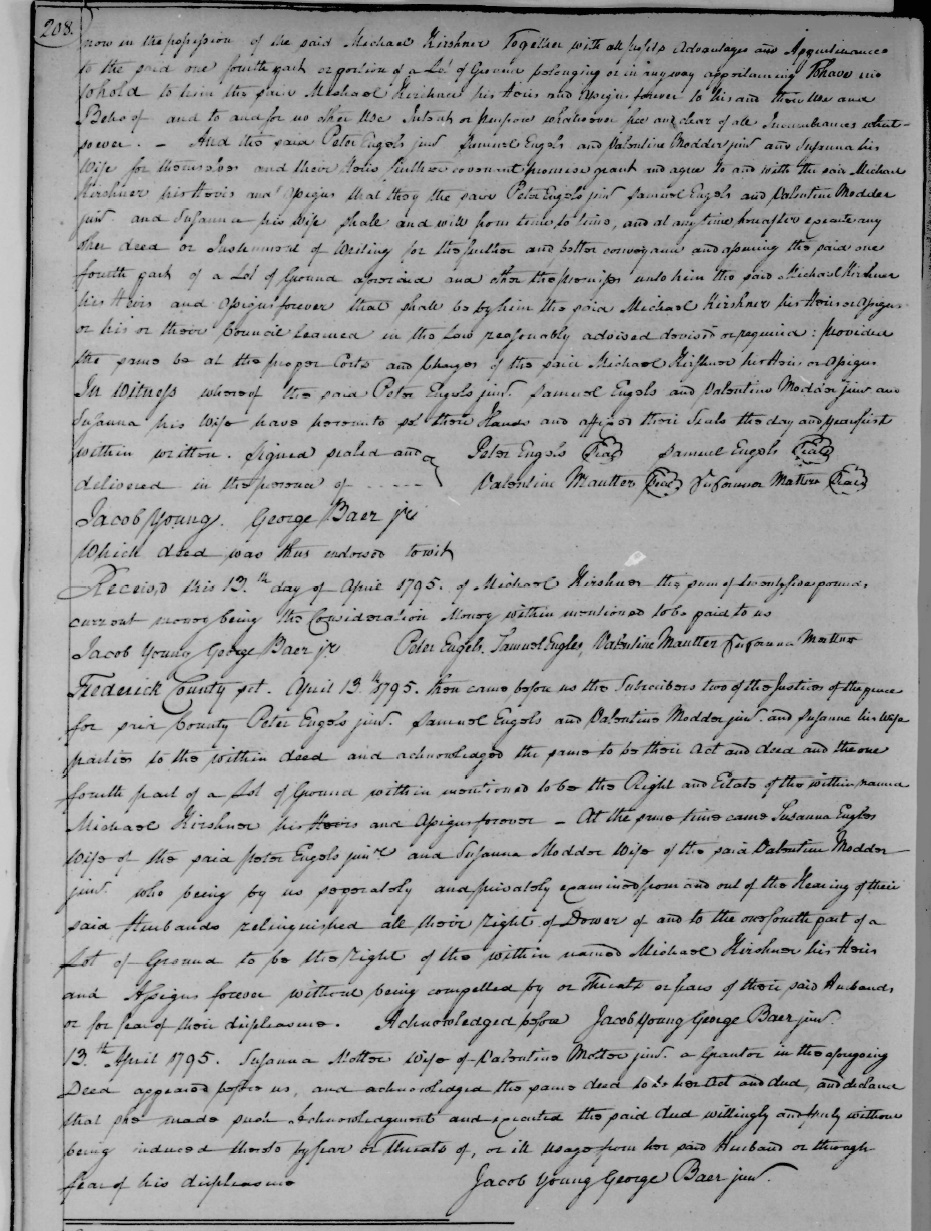 208.
now in the possession of the said Michael Kirshner Together with all profits Advantages and Appurtenances
to the said one fourth part or portion of a Lot of Ground belonging or in any way appertaining To have and
to hold to him the said Michael Kirshner his Heirs and Assigns forever to his and their Use and
Behoof and to and for no other Use Intent or purpose whatsoever free and clear of all Incumbrances what-
soever. – And the said Peter Engels junr Samuel Engels and Valentine Modder junr and Susanna his
Wife for themselves and their Heirs further covenant promise grant and agree to and with the said Michael
Kirshner his Heirs and Assigns that they the said Peter Engels junr Samuel Engels and Valentine Modder
junr. and Susanna his Wife shall and will from time to time, and at any time hereafter execute any
other deed or Instrument of Writing for the further and better conveyance and assuring the said one
fourth part of a Lot of Ground aforesaid and other the premises unto him the said Michael Kirshner
his Heirs and Assigns forever that shall be by him the said Michael Kirshner his Heirs or Assigns
or his or their Council learned in the Law reasonably advised devised or required: provided
the same be at the proper Costs and Charges of the said Michael Kirshner his Heirs or Assigns
In Witness whereof the said Peter Engels junr. Samuel Engels and Valentine Modder junr and
Susanna his Wife have hereunto set their Hands and affixed their Seals the day and year first
within written. Signed sealed and Peter Engels Seal Samuel Engels Seal
delivered in the presence of - - - - - Valentine Mautter Seal Susanna Matter Seal
Jacob Young. George Baer jr
Which deed was thus endorsed to wit
Received this 13.th day of April 1795. of Michael Kirshner the sum of twenty five pounds
current money being the Consideration Money within mentioned to be paid to us
Jacob Young George Baer jr Peter Engels. Samuel Engles, Valentine Mautter Susanna Matter
Frederick County sct. April 13.th 1795. then came before us the Subscribers two of the Justices of the peace
for said County Peter Engels junr. Samuel Engels and Valentine Modder junr. and Susanna his Wife
parties to the within deed and acknowledged the same to be their Act and deed and the one
fourth part of a Lot of Ground within mentioned to be the Right and Estate of the within named
Michael Kirshner his Heirs and Assigns forever – At the same time came Susanna Engles
Wife of the said Peter Engels junr and Susanna Modder Wife of the said Valentine Modder
junr. who being by us seperately and privately examined from and out of the Hearing of their
said Husbands relinquished all their right of Dower of and to the one fourth part of a
Lot of Ground to be the Right of the within named Michael Kirshner his Heirs
and Assigns forever without being compelled by or Threats or fears of their said Husbands
or for fear of their displeasure. Acknowledged before Jacob Young George Baer junr.
13.th April 1795. Susanna Motter Wife of Valentine Motter junr. a Grantor in the aforegoing
Deed appeared before us, and acknowledged the same deed to be her Act and deed, and declared
that she made such Acknowledgment and executed the said deed willingly and freely without
being induced thereto by fear or Threats of, or ill usage from her said Husband or through
fear of his displeasure Jacob Young George Baer junr.